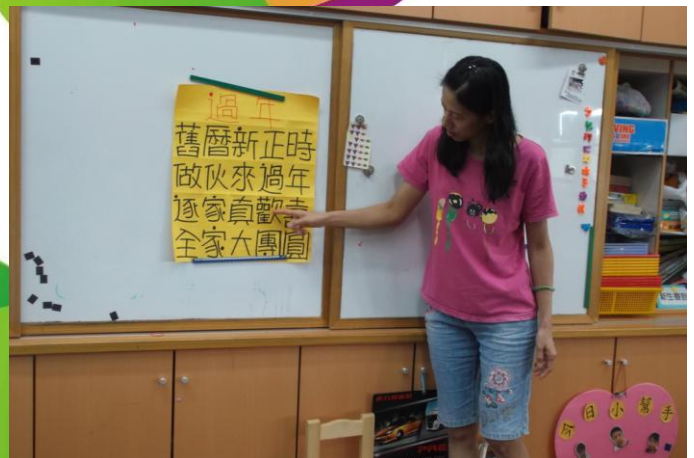 過年
舊曆新正時
做伙來過年
逐家真歡喜
全家大團圓
今日小幫手